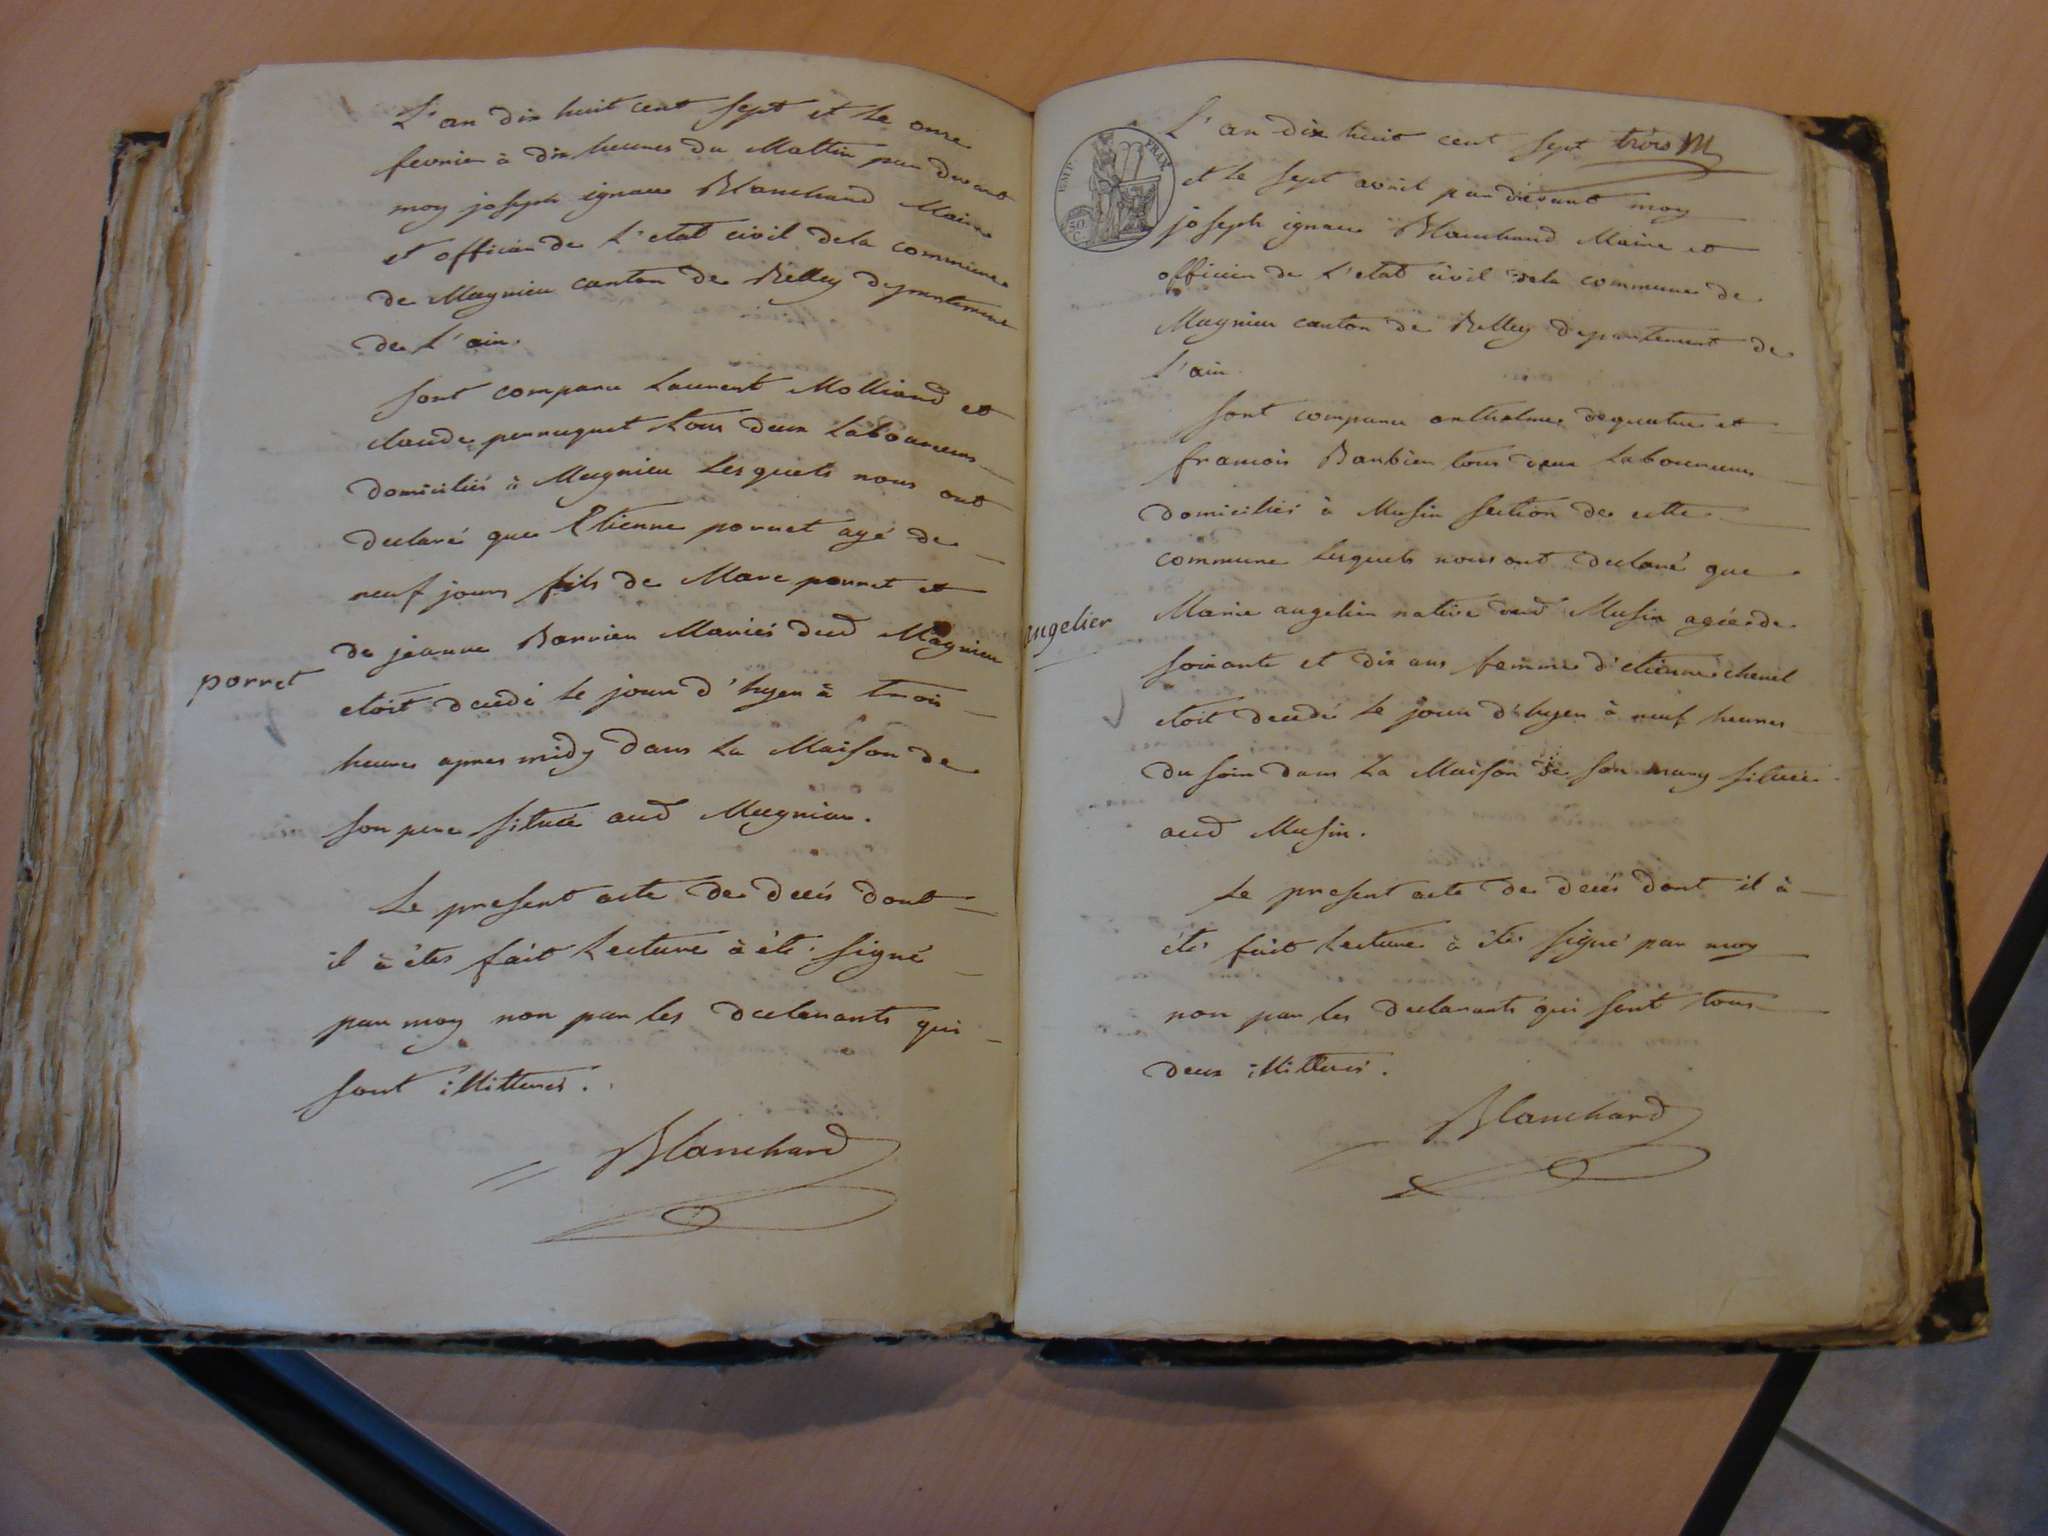 L'an dix huit cent sept et le onze
fevrier à dix heures du Mattin par devant
moy joseph ignace Blanchard Maire
et officier de L'etat civil dela commune
de Magnieu canton de Belley departement
de L'ain.
sont comparu Laurent Molliard et
claude perruquet tous deux Laboureurs
domiciliés à Magnieu Lesquels nous ont
declaré que Etienne porret agé de
neuf jours fils de Marc porret et
de jeanne Barrier Mariés dud Magnieu
etoit decedé le jour d'hyer à trois
heures apres midy dans La Maison de
son pere située aud Magnieu.
Le present acte de decés dont
il à étes fait Lecture à été signé
par moy non par les declarants qui
sont illitterés.
Blanchard
porret
EMP. FRAN.
50 C
L'an dix huit cent sept trois M
et le sept avril par devant moy
joseph ignace Blanchard Maire et
officier de L'etat civil dela commune de
Magnieu canton de Belley departement de
l'ain.
sont comparu anthelme dequatre et
francois Barbier tous deux Laboureurs
domiciliés à Musin section de cette
commune Lesquels nous ont declaré que
Marie augelier native dud Musin agée de
soixante et dix ans femme d'etienne chenel
etoit decedé le jour d'hyer à neuf heures
du soir dans La Maison de son mary située
aud Musin.
Le present acte de decés dont il à
étés fait Lecture à étés signé par moy
non par les declarants qui sont tous
deux illitterés.
Blanchard
augelier